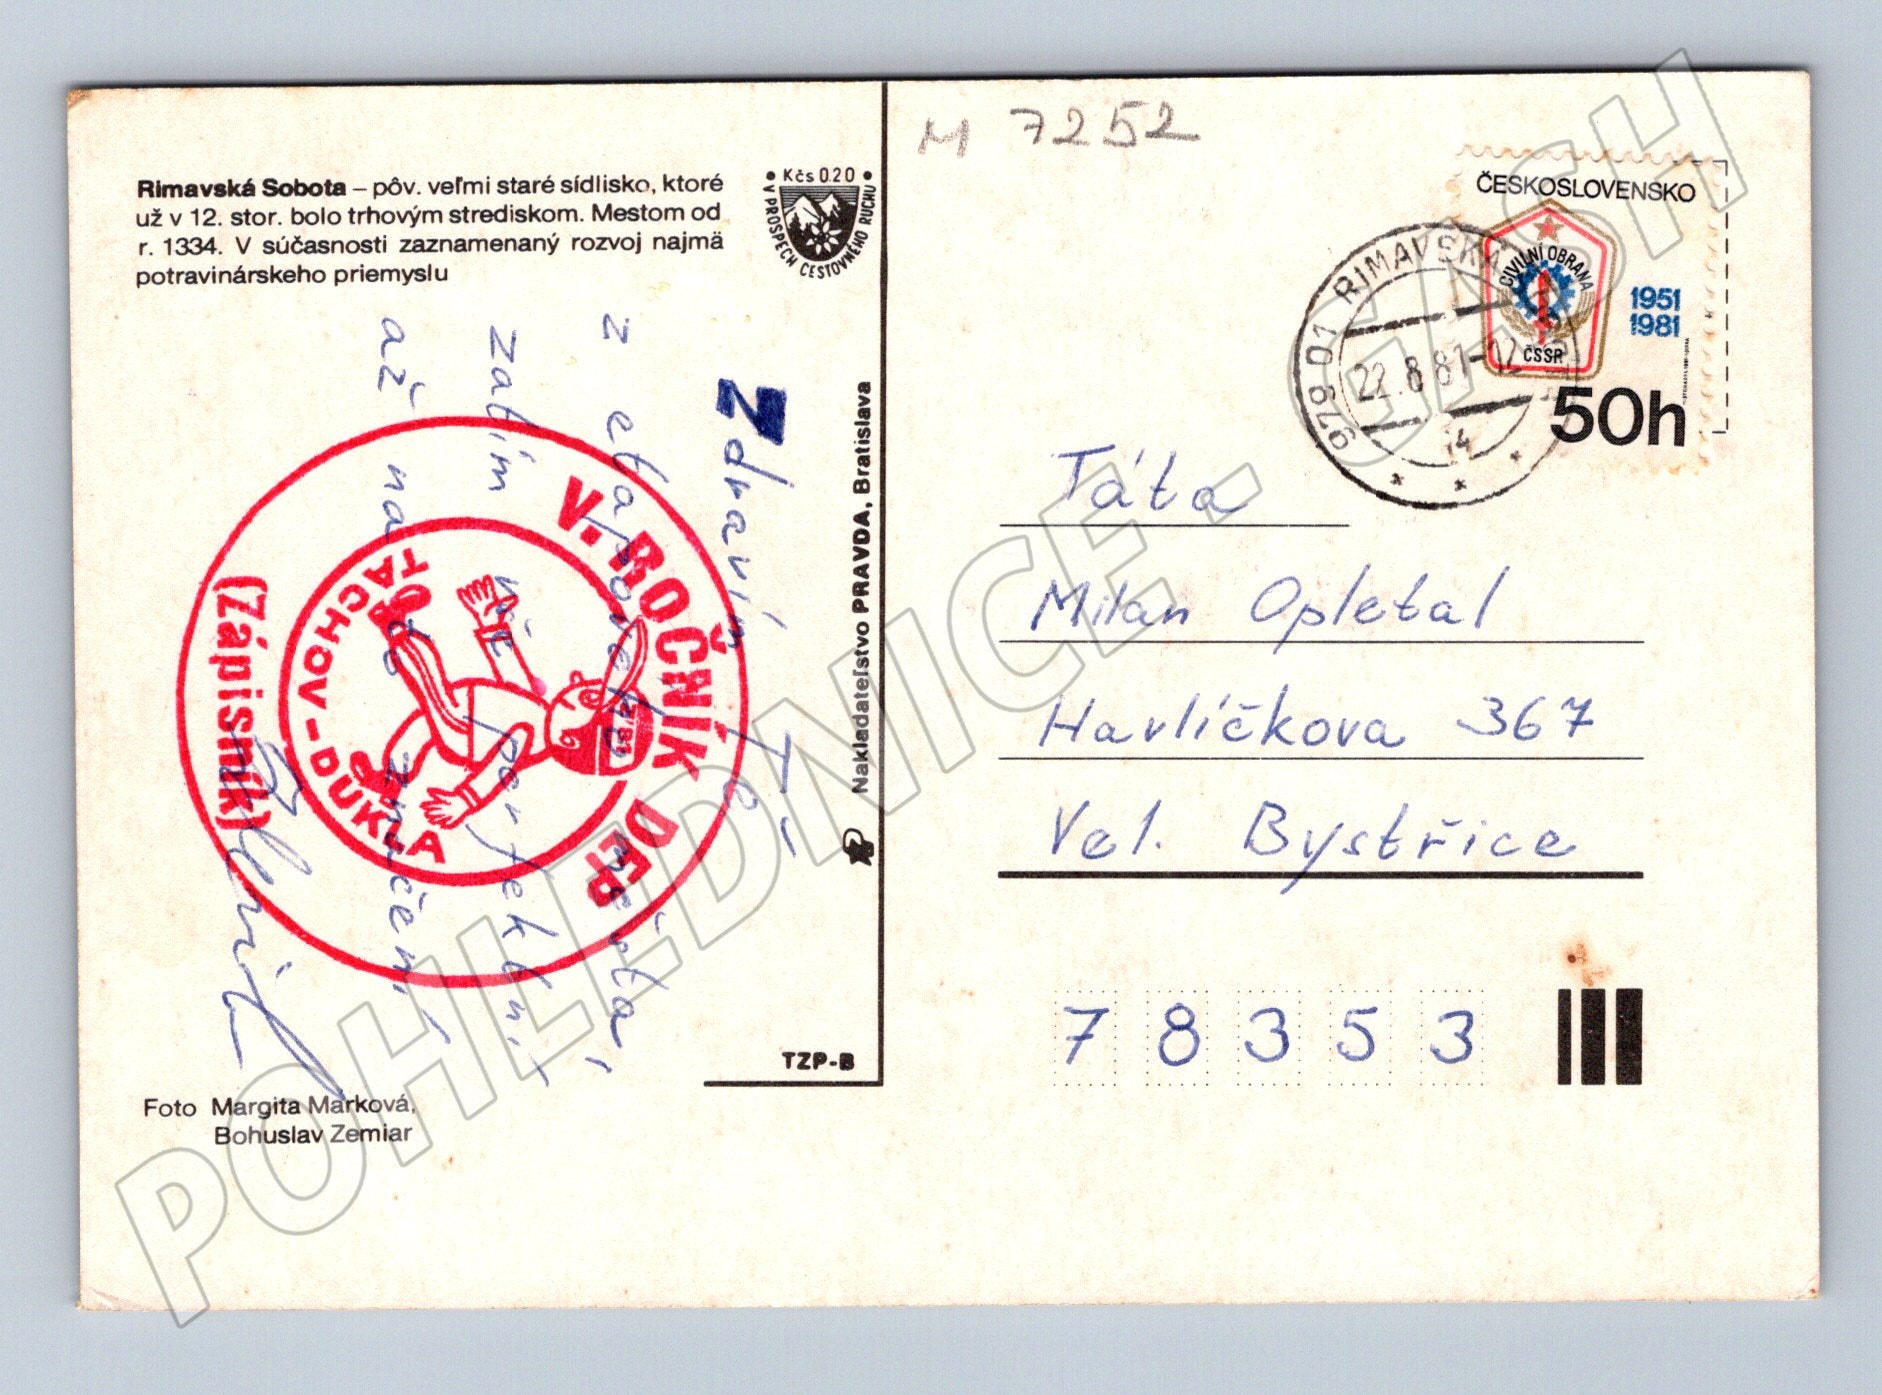 M 7252
Rimavská Sobota – pôv. veľmi staré sídlisko, ktoré
už v 12. stor. bolo trhovým strediskom. Mestom od
r. 1334. V súčasnosti zaznamenaný rozvoj najmä
potravinárskeho priemyslu
• Kčs 0.20 •
V PROSPECH CESTOVNÉHO RUCHU
Zdravím Tě
z etapového města
zatím vše perfektní
až na to zničení
V. ROČNÍK DEP
(Zápisník)
TACHOV – DUKLA
Nakladateľstvo PRAVDA, Bratislava
TZP-B
Foto Margita Marková,
Bohuslav Zemiar
ČESKOSLOVENSKO
CIVILNÍ OBRANA
ČSSR
1951
1981
50h
979 01 RIMAVSKÁ
22.8.81-12
14
Táta
Milan Opletal
Havlíčkova 367
Vel. Bystřice
78353
POHLEDNICE - GASH